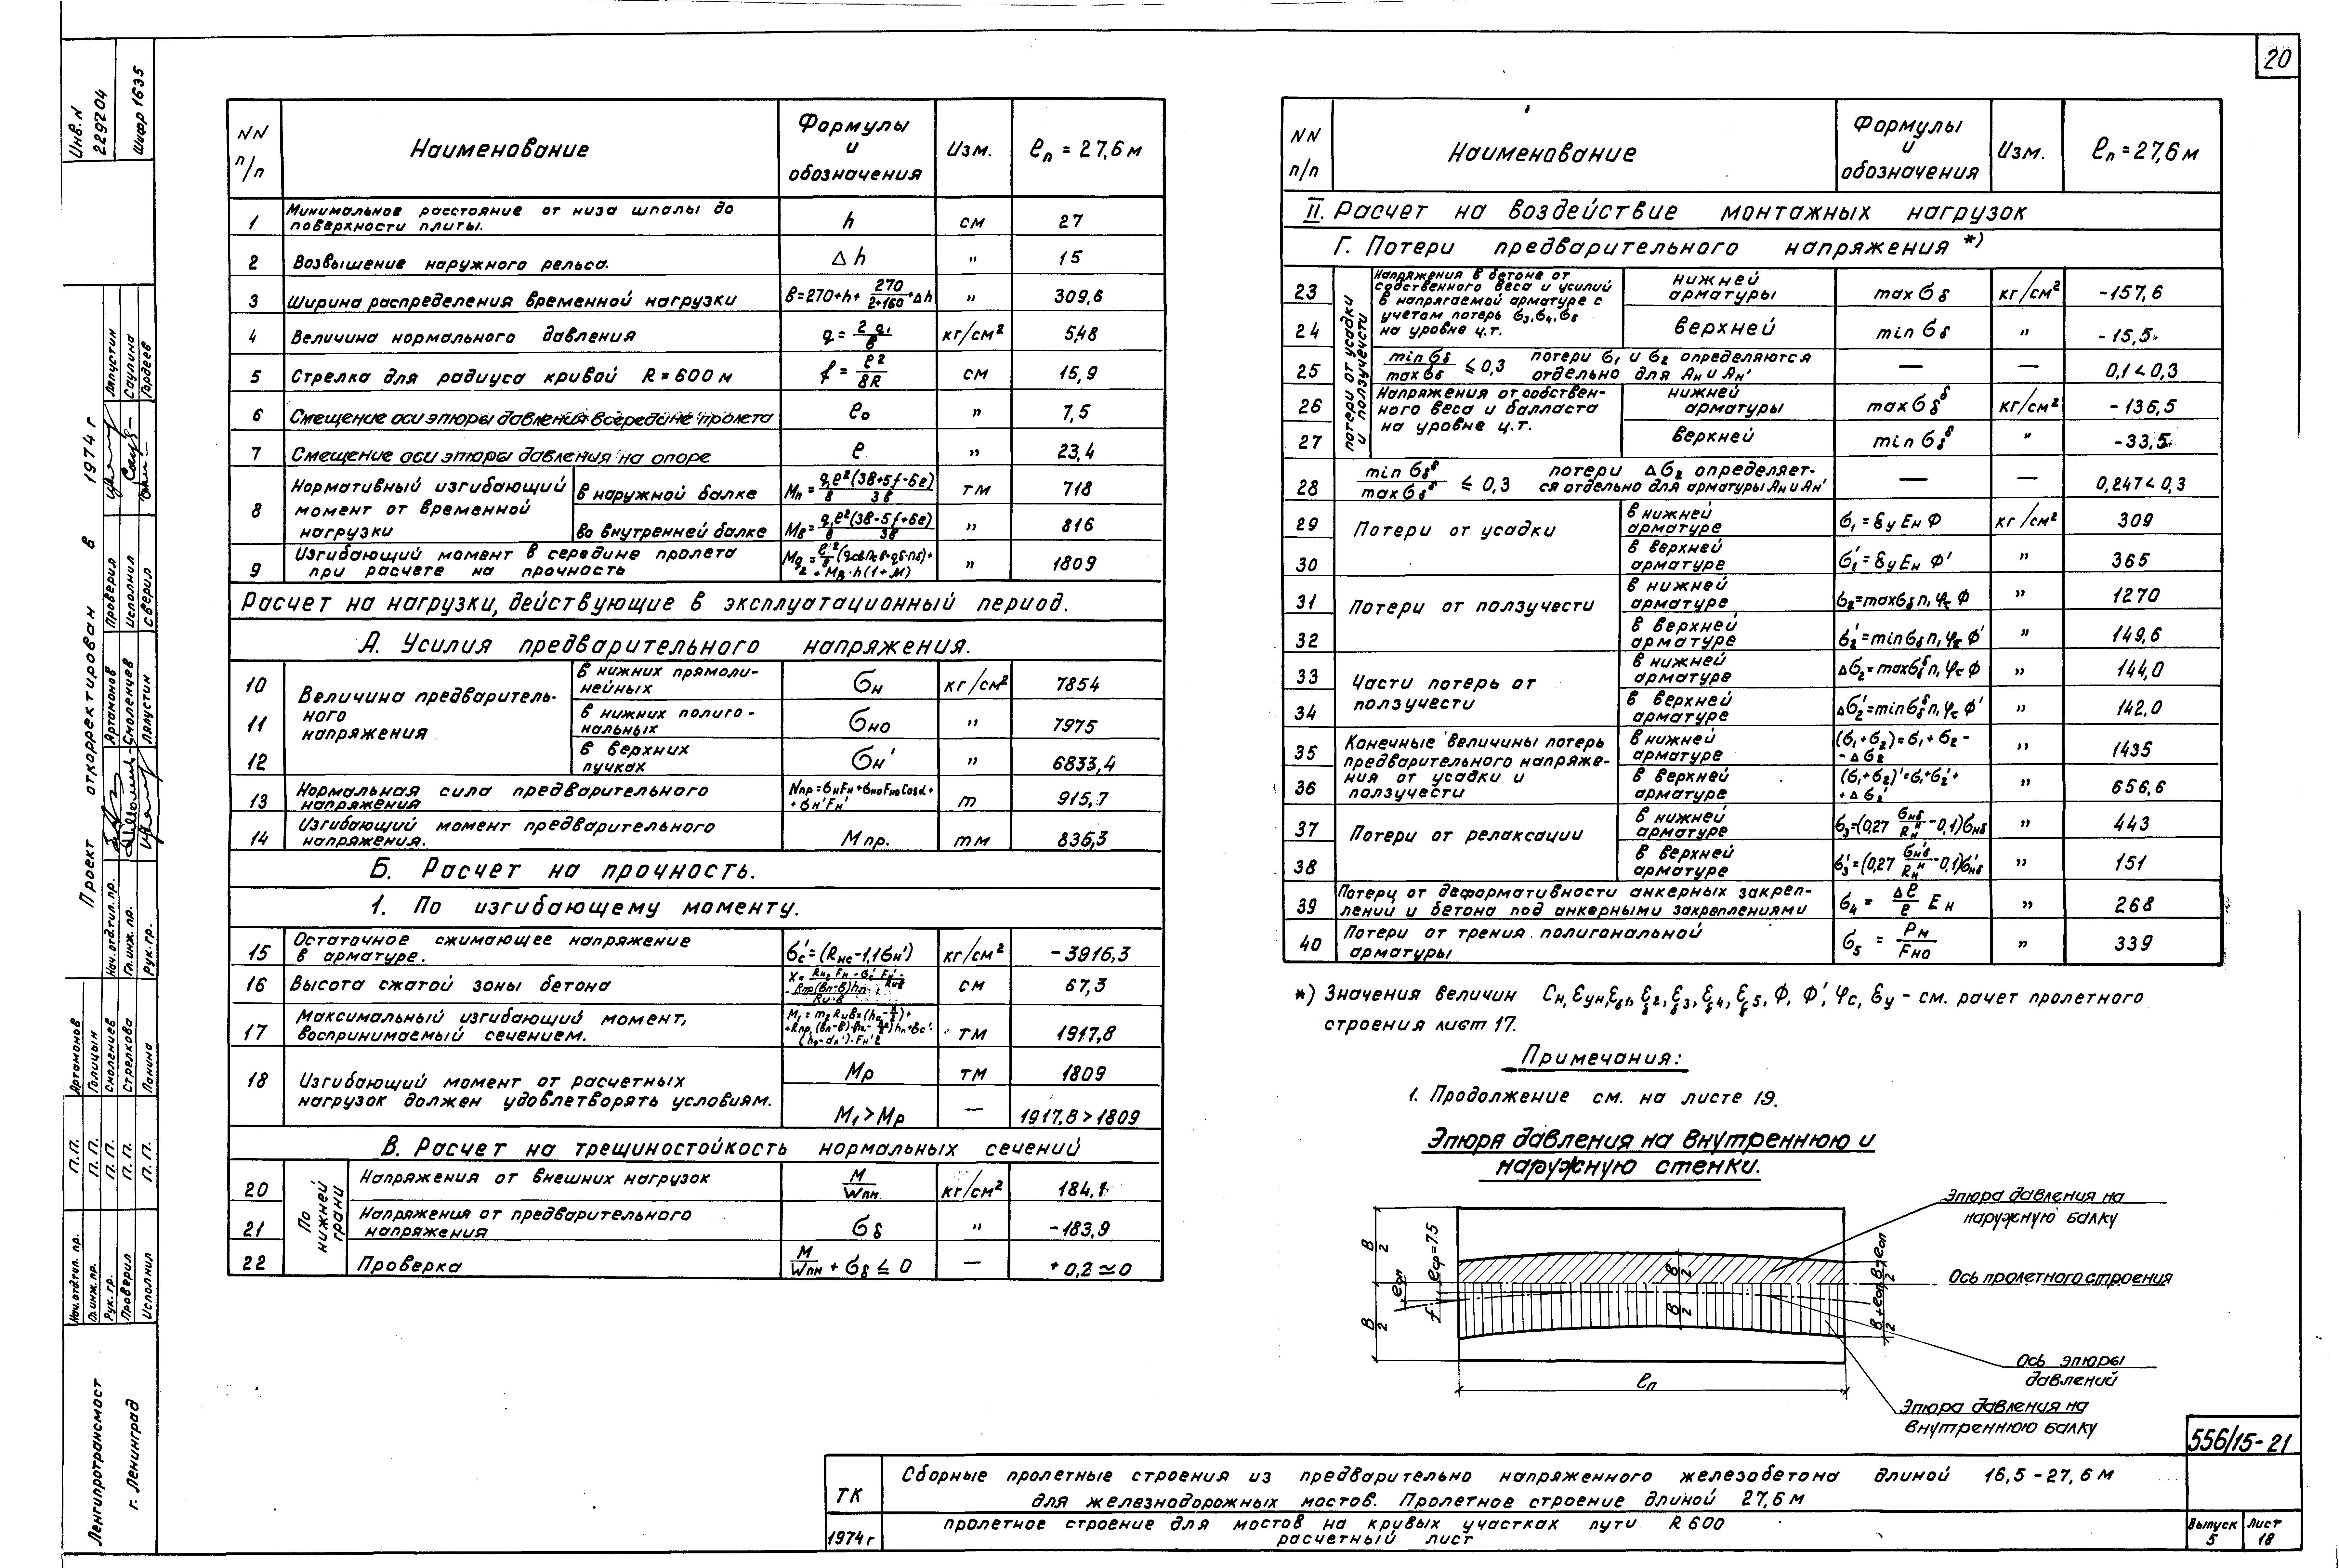 20
Инв. N
229204
Шифр 1635
Проект откорректирован в 1974 г
Нач. отд. тип. пр. Артамонов Проверил Ляпустин
Гл. инж. пр. Смоленцев Исполнил Саулина
Рук. гр. Ляпустин Сверил Гордеев
Нач. отд. тип. пр. П.П. Артамонов
Гл. инж. пр. П.П. Голицын
Рук. гр. П.П. Смоленцев
Проверил П.П. Стрелкова
Исполнил П.П. Панина
Ленгипротрансмост
г. Ленинград
NN п/п Наименование Формулы и обозначения Изм. ℓп = 27,6 м
1 Минимальное расстояние от низа шпалы до поверхности плиты. h см 27
2 Возвышение наружного рельса. Δh " 15
3 Ширина распределения временной нагрузки в=270+h+ 270/2+160 ·Δh " 309,6
4 Величина нормального давления q = 2q₁/в кг/см² 5,48
5 Стрелка для радиуса кривой R = 600 м f = ℓ²/8R см 15,9
6 Смещение оси эпюры давления в середине пролета ℓ₀ " 7,5
7 Смещение оси эпюры давления на опоре ℓ " 23,4
8 Нормативный изгибающий момент от временной нагрузки
в наружной балке Mн = qℓ²(3в+5f-6e)/8 3в тм 718
во внутренней балке Mв = qℓ²(3в-5f+6e)/8 3в " 816
9 Изгибающий момент в середине пролета при расчете на прочность " 1809
Расчет на нагрузки, действующие в эксплуатационный период.
А. Усилия предварительного напряжения.
Величина предварительного напряжения
10 в нижних прямолинейных σн кг/см² 7854
11 в нижних полигональных σно " 7975
12 в верхних пучках σн' " 6833,4
13 Нормальная сила предварительного напряжения Nпр = σнFн + σноFноCosα + + σн'Fн' т 915,7
14 Изгибающий момент предварительного напряжения. Mпр. тм 836,3
Б. Расчет на прочность.
1. По изгибающему моменту.
15 Остаточное сжимающее напряжение в арматуре. σс' = (Rнс - 1,1σн') кг/см² - 3916,3
16 Высота сжатой зоны бетона см 67,3
17 Максимальный изгибающий момент, воспринимаемый сечением. тм 1917,8
18 Изгибающий момент от расчетных нагрузок должен удовлетворять условиям. Mр тм 1809
M₁ > Mр — 1917,8 > 1809
В. Расчет на трещиностойкость нормальных сечений
По нижней грани
20 Напряжения от внешних нагрузок M/Wпн кг/см² 184,1
21 Напряжения от предварительного напряжения σδ " -183,9
22 Проверка M/Wпн + σδ ≤ 0 — + 0,2 ≃ 0
NN п/п Наименование Формулы и обозначения Изм. ℓп = 27,6 м
II. Расчет на воздействие монтажных нагрузок
Г. Потери предварительного напряжения *)
Потери от усадки и ползучести
Напряжения в бетоне от собственного веса и усилий в напрягаемой арматуре с учетом потерь σ₃,σ₄,σ₅ на уровне ц.т.
23 нижней арматуры max σδ кг/см² -157,6
24 верхней min σδ " - 15,5
25 min σδ/max σδ ≤ 0,3 потери σ₁ и σ₂ определяются отдельно для Aн и Aн' — — 0,1 < 0,3
Напряжения от собственного веса и балласта на уровне ц.т.
26 нижней арматуры max σδ^δ кг/см² - 136,5
27 верхней min σδ^δ " -33,5
28 min σδ^δ/max σδ^δ ≤ 0,3 потери Δσ₂ определяется отдельно для арматуры Aн и Aн' — — 0,247 < 0,3
Потери от усадки
29 в нижней арматуре σ₁ = εу Eн Ф кг/см² 309
30 в верхней арматуре σ₁' = εу Eн Ф' " 365
Потери от ползучести
31 в нижней арматуре σ₂ = maxσδ n₁ φс Ф " 1270
32 в верхней арматуре σ₂' = minσδ n₁ φс Ф' " 149,6
Части потерь от ползучести
33 в нижней арматуре Δσ₂ = maxσδ^δ n₁ φс Ф " 144,0
34 в верхней арматуре Δσ₂' = minσδ^δ n₁ φс Ф' " 142,0
Конечные величины потерь предварительного напряжения от усадки и ползучести
35 в нижней арматуре (σ₁+σ₂) = σ₁ + σ₂ - - Δσ₂ " 1435
36 в верхней арматуре (σ₁+σ₂)' = σ₁'+σ₂' + + Δσ₂' " 656,6
Потери от релаксации
37 в нижней арматуре σ₃=(0,27 σнδ/Rнᴴ - 0,1)σнδ " 443
38 в верхней арматуре σ₃'=(0,27 σн'δ/Rнᴴ - 0,1)σн'δ " 151
39 Потери от деформативности анкерных закреплений и бетона под анкерными закреплениями σ₄ = Δℓ/ℓ Eн " 268
40 Потери от трения полигональной арматуры σ₅ = Pм/Fно " 339
*) Значения величин Cн, εун, ξσ1, ξ2, ξ3, ξ4, ξ5, Ф, Ф', φс, εу - см. рачет пролетного
строения лист 17.
Примечания:
1. Продолжение см. на листе 19.
Эпюра давления на внутреннюю и
наружную стенки.
Эпюра давления на
наружную балку
Ось пролетного строения
Ось эпюры
давлений
Эпюра давления на
внутреннюю балку
B/2
B/2
eоп
eср=7,5
f
B/2
B/2
B/2 - eоп
B/2 + eоп
ℓп
556/15-21
ТК
1974 г
Сборные пролетные строения из предварительно напряженного железобетона длиной 16,5 - 27,6 м
для железнодорожных мостов. Пролетное строение длиной 27,6 м
пролетное строение для мостов на кривых участках пути R 600
расчетный лист
Выпуск
5
Лист
18